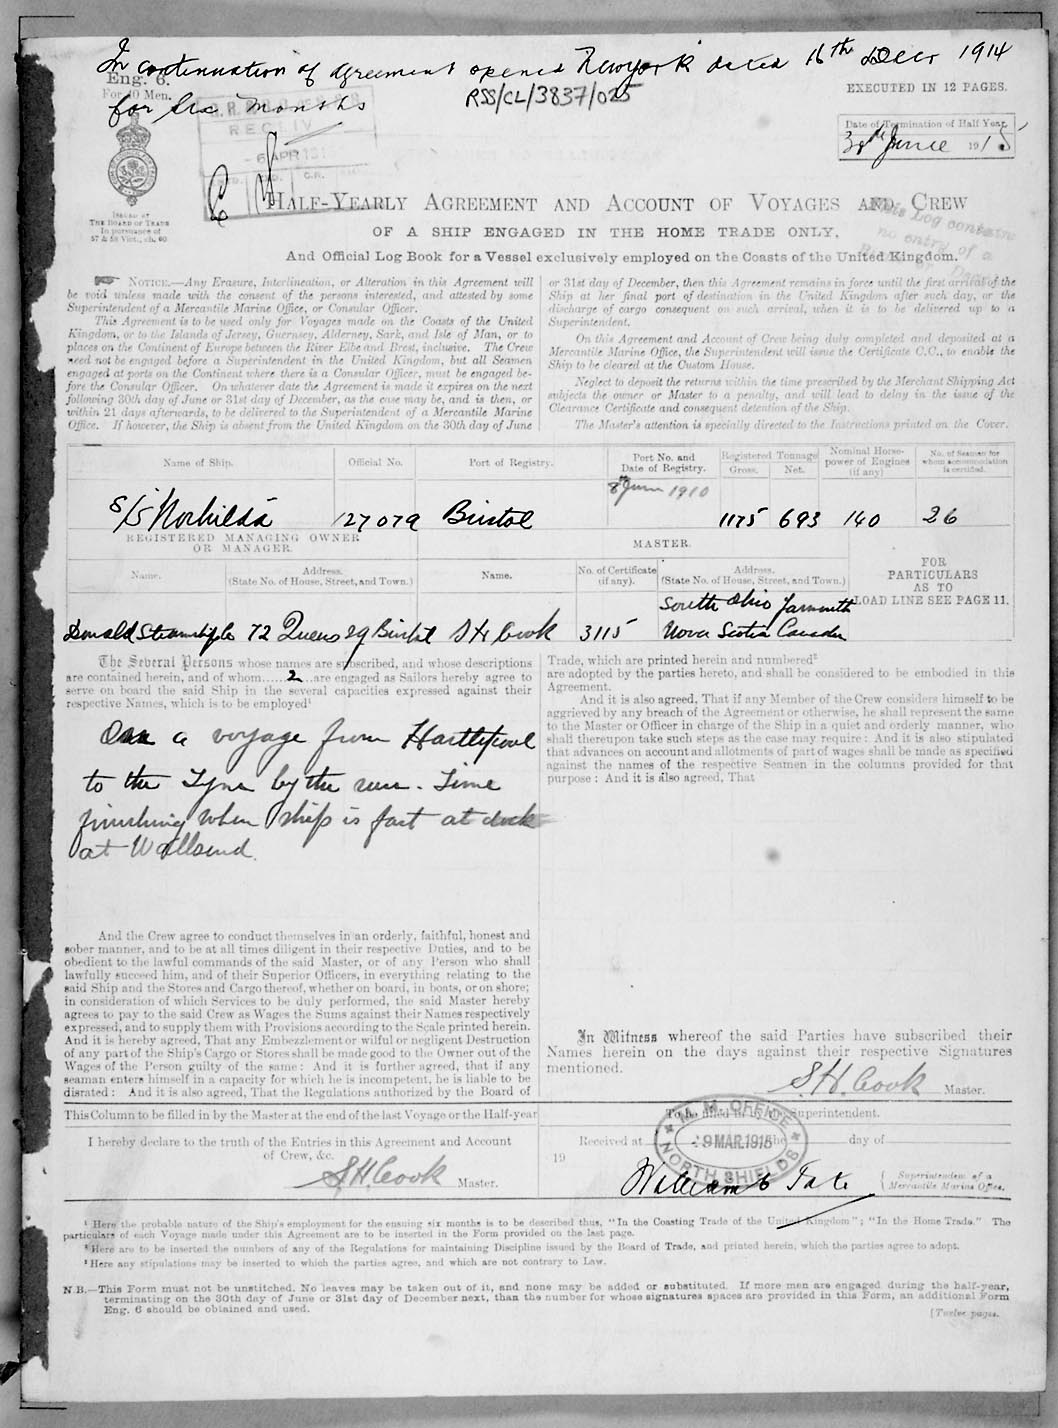 In continuation of agreement opened Newyork dated 16th Decr 1914
for six months
RSS/CL/3837/025
Eng. 6.
For 40 Men.
EXECUTED IN 12 PAGES.
Date of Termination of Half Year.
30th June 1915
RECEIV
6 APR 191
C.R.
ISSUED BY
THE BOARD OF TRADE
In pursuance of
57 & 58 Vict., ch. 60
HALF-YEARLY AGREEMENT AND ACCOUNT OF VOYAGES AND CREW
This Log contains
no entry of a
OF A SHIP ENGAGED IN THE HOME TRADE ONLY,
And Official Log Book for a Vessel exclusively employed on the Coasts of the United Kingdom.
NOTICE.—Any Erasure, Interlineation, or Alteration in this Agreement will
be void unless made with the consent of the persons interested, and attested by some
Superintendent of a Mercantile Marine Office, or Consular Officer.
This Agreement is to be used only for Voyages made on the Coasts of the United
Kingdom, or to the Islands of Jersey, Guernsey, Alderney, Sark, and Isle of Man, or to
places on the Continent of Europe between the River Elbe and Brest, inclusive. The Crew
need not be engaged before a Superintendent in the United Kingdom, but all Seamen
engaged at ports on the Continent where there is a Consular Officer, must be engaged be-
fore the Consular Officer. On whatever date the Agreement is made it expires on the next
following 30th day of June or 31st day of December, as the case may be, and is then, or
within 21 days afterwards, to be delivered to the Superintendent of a Mercantile Marine
Office. If however, the Ship is absent from the United Kingdom on the 30th day of June
or 31st day of December, then this Agreement remains in force until the first arrival of the
Ship at her final port of destination in the United Kingdom after such day, or the
discharge of cargo consequent on such arrival, when it is to be delivered up to a
Superintendent.
On this Agreement and Account of Crew being duly completed and deposited at a
Mercantile Marine Office, the Superintendent will issue the Certificate C.C., to enable the
Ship to be cleared at the Custom House.
Neglect to deposit the returns within the time prescribed by the Merchant Shipping Act
subjects the owner or Master to a penalty, and will lead to delay in the issue of the
Clearance Certificate and consequent detention of the Ship.
The Master's attention is specially directed to the Instructions printed on the Cover.
Name of Ship. Official No. Port of Registry. Port No. and Date of Registry. Registered Tonnage Gross. Net. Nominal Horse-power of Engines (if any) No. of Seamen for whom accommodation is certified.
8th June 1910
S/S Norhilda 127079 Bristol 1175 693 140 26
REGISTERED MANAGING OWNER
OR MANAGER.
MASTER.
Name. Address. (State No. of House, Street, and Town.) Name. No. of Certificate (if any). Address. (State No. of House, Street, and Town.)
FOR
PARTICULARS
AS TO
LOAD LINE SEE PAGE 11.
South Ohio Yarmouth
Donald Steamship Co 72 Queens Sq Bristol S H Cook 3115 Nova Scotia Canada
The Several Persons whose names are subscribed, and whose descriptions
are contained herein, and of whom.....2...are engaged as Sailors hereby agree to
serve on board the said Ship in the several capacities expressed against their
respective Names, which is to be employed¹
On a voyage from Hartlepool
to the Tyne by the run. Time
finishing when ship is fast at dock
at Wallsend.
And the Crew agree to conduct themselves in an orderly, faithful, honest and
sober manner, and to be at all times diligent in their respective Duties, and to be
obedient to the lawful commands of the said Master, or of any Person who shall
lawfully succeed him, and of their Superior Officers, in everything relating to the
said Ship and the Stores and Cargo thereof, whether on board, in boats, or on shore;
in consideration of which Services to be duly performed, the said Master hereby
agrees to pay to the said Crew as Wages the Sums against their Names respectively
expressed, and to supply them with Provisions according to the Scale printed herein.
And it is hereby agreed, That any Embezzlement or wilful or negligent Destruction
of any part of the Ship's Cargo or Stores shall be made good to the Owner out of the
Wages of the Person guilty of the same: And it is further agreed, that if any
seaman enters himself in a capacity for which he is incompetent, he is liable to be
disrated: And it is also agreed, That the Regulations authorized by the Board of
Trade, which are printed herein and numbered²
are adopted by the parties hereto, and shall be considered to be embodied in this
Agreement.
And it is also agreed, That if any Member of the Crew considers himself to be
aggrieved by any breach of the Agreement or otherwise, he shall represent the same
to the Master or Officer in charge of the Ship in a quiet and orderly manner, who
shall thereupon take such steps as the case may require: And it is also stipulated
that advances on account and allotments of part of wages shall be made as specified
against the names of the respective Seamen in the columns provided for that
purpose: And it is also agreed, That
In Witness whereof the said Parties have subscribed their
Names herein on the days against their respective Signatures
mentioned.
S. H. Cook Master.
This Column to be filled in by the Master at the end of the last Voyage or the Half-year
I hereby declare to the truth of the Entries in this Agreement and Account
of Crew, &c.
S. H. Cook Master.
To be filled in by the Superintendent.
Received at the day of
19
M. M. OFFICE
9 MAR.1915
NORTH SHIELDS
William Tate
Superintendent of a
Mercantile Marine Office.
¹ Here the probable nature of the Ship's employment for the ensuing six months is to be described thus, "In the Coasting Trade of the United Kingdom"; "In the Home Trade." The
particulars of each Voyage made under this Agreement are to be inserted in the Form provided on the last page.
² Here are to be inserted the numbers of any of the Regulations for maintaining Discipline issued by the Board of Trade, and printed herein, which the parties agree to adopt.
³ Here any stipulations may be inserted to which the parties agree, and which are not contrary to Law.
N.B.—This Form must not be unstitched. No leaves may be taken out of it, and none may be added or substituted. If more men are engaged during the half-year,
terminating on the 30th day of June or 31st day of December next, than the number for whose signatures spaces are provided in this Form, an additional Form
Eng. 6 should be obtained and used.
[Twelve pages.